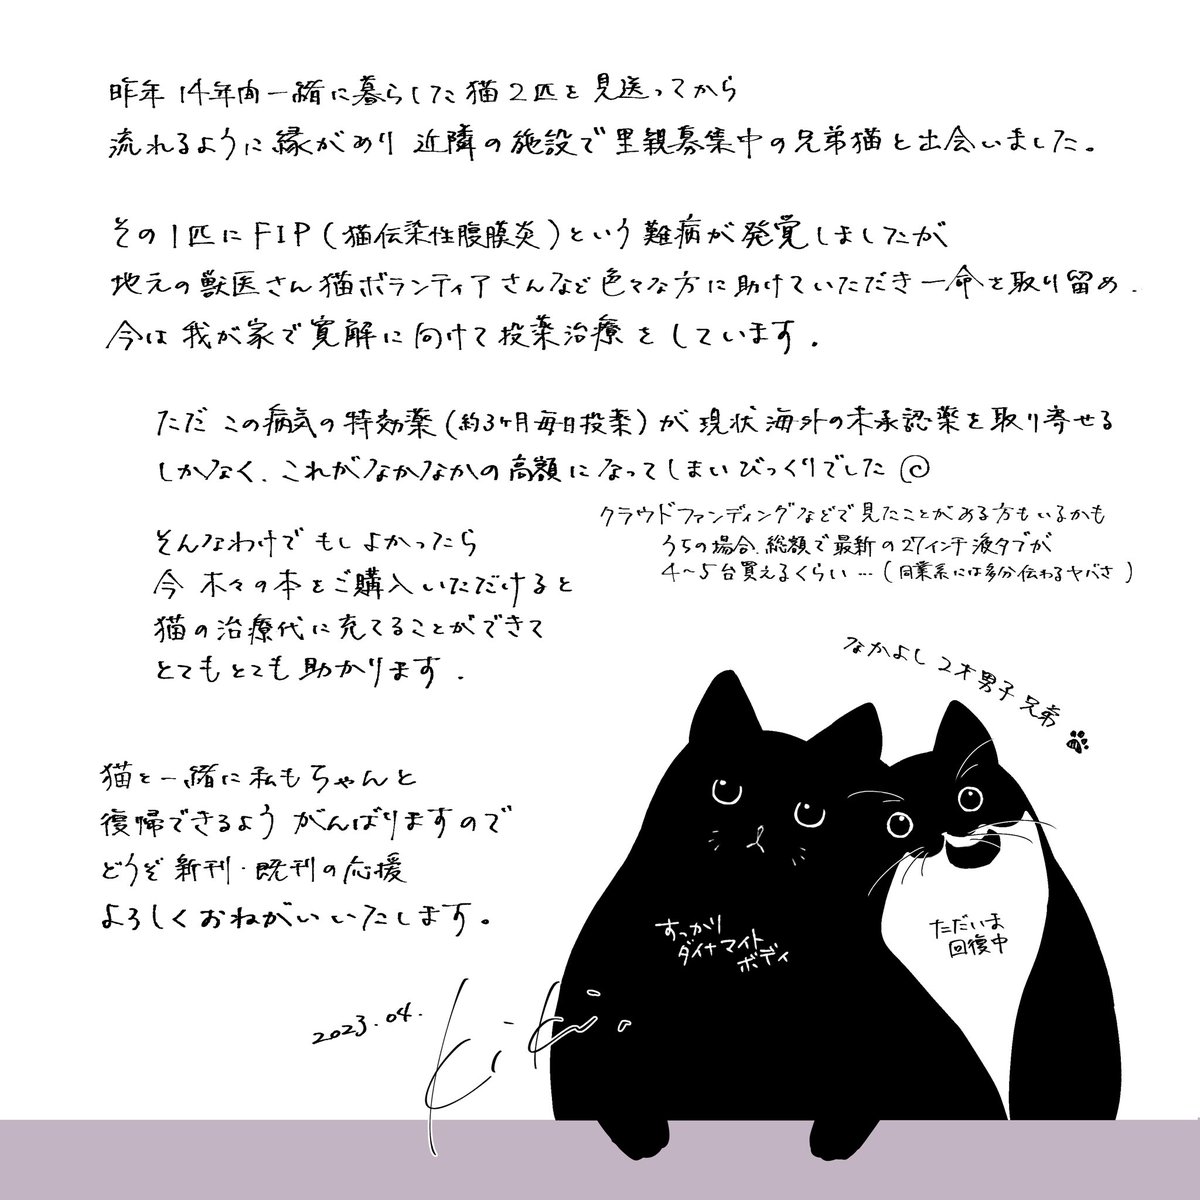 昨年 14年間一緒に暮らした猫2匹を見送ってから
流れるように縁があり 近隣の施設で里親募集中の兄弟猫と出会いました。
その1匹にFIP(猫伝染性腹膜炎)という難病が発覚しましたが
地元の獣医さん猫ボランティアさんなど色々な方に助けていただき一命を取り留め、
今は我が家で寛解に向けて投薬治療をしています.
ただ この病気の特効薬(約3ヶ月毎日投薬)が現状海外の未承認薬を取り寄せる
しかなく、これがなかなかの高額になってしまいびっくりでした
クラウドファンディングなどで見たことがある方もいるかも
うちの場合、総額で最新の27インチ液タブが
4〜5台買えるくらい…(同業系には多分伝わるヤバさ)
そんなわけで もしよかったら
今 木々の本をご購入いただけると
猫の治療代に充てることができて
とてもとても助かります.
なかよし 2才男子兄弟
猫と一緒に私もちゃんと
復帰できるよう がんばりますので
どうぞ 新刊・既刊の応援
よろしくおねがいいたします。
すっかり
ダイナマイト
ボディ
ただいま
回復中
2023.04.